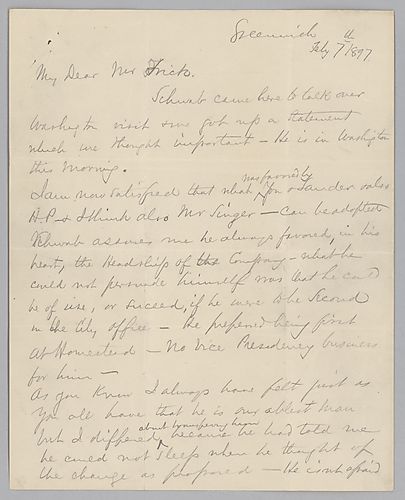 Greenwich
Feby 7th 1897
My Dear Mr Frick.
Schwab came here to talk over
Washington visit & we got up a statement
which we thought important – He is in Washington
this morning.
I am now satisfied that what was favored by
you & Lauder also
H.P. & I think also Mr Singer – can be adopted
Schwab assures me he always favored, in his
heart, the Headship of the Company – what he
could not persuade himself was that he could
be of use, or succeed, if he were to be Second
in the City office – he preferred being first
at Homestead – No Vice Presidency business
for him –
As you know I always have felt just as
you all have that he is our ablest man
but I differed about transferring him because he had told me
he could not sleep when he thought of
the change as proposed – He is not afraid